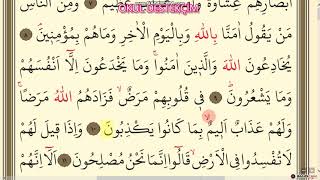 OKUL DESTEKÇİM
اَبْصَارِهِمْ غِشَاوَةٌ وَمِنَ النَّاسِ
مَنْ يَقُولُ اٰمَنَّا بِاللّٰهِ وَبِالْيَوْمِ الْاٰخِرِ وَمَاهُمْ بِمُؤْمِن۪ينَۢ ٨
يُخَادِعُونَ اللّٰهَ وَالَّذ۪ينَ اٰمَنُواۚ وَمَا يَخْدَعُونَ اِلَّٓا اَنْفُسَهُمْ
وَمَا يَشْعُرُونَۜ ٩ ف۪ي قُلُوبِهِمْ مَرَضٌۙ فَزَادَهُمُ اللّٰهُ مَرَضًاۚ
وَلَهُمْ عَذَابٌ اَل۪يمٌۙ بِمَا كَانُوا يَكْذِبُونَ ١٠ وَاِذَا ق۪يلَ لَهُمْ
لَا تُفْسِدُوا فِي الْاَرْضِۙ قَالُٓوا اِنَّمَا نَحْنُ مُصْلِحُونَ ١١ اَلَٓا اِنَّهُمْ